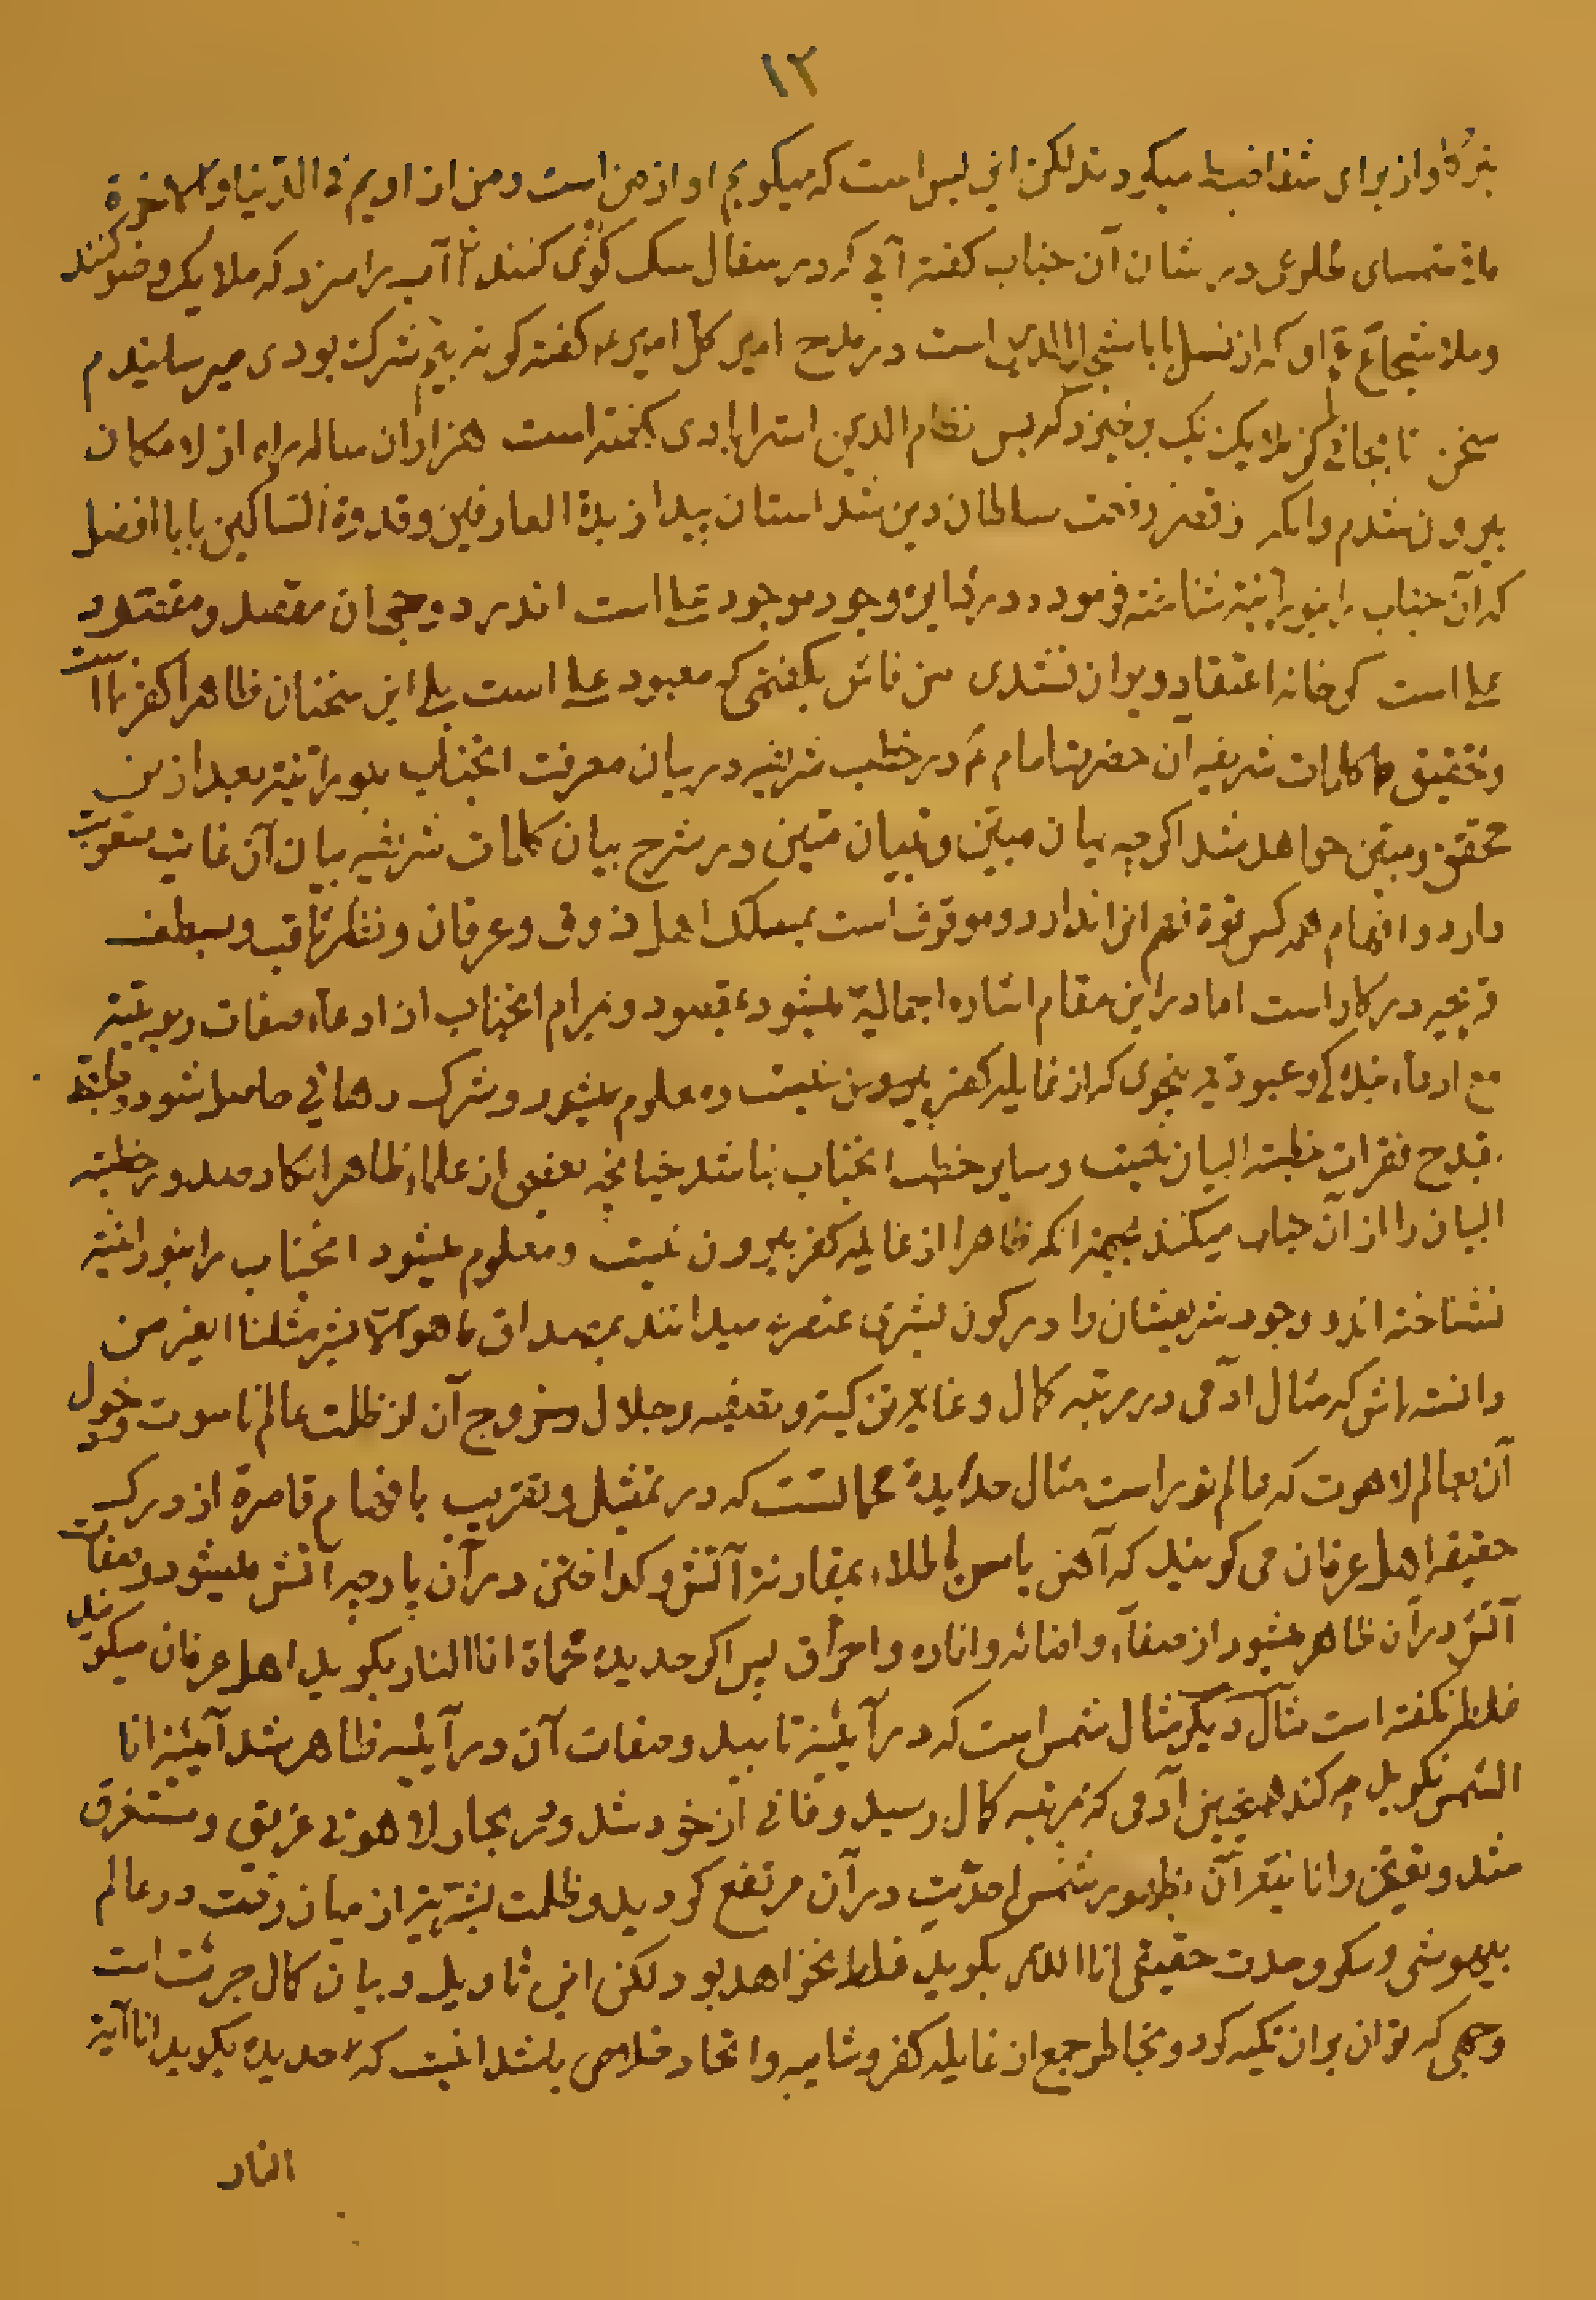 ١٢
او از برای میکردند لکن این بس است که میکویم او از من است و من از اویم فی الدنیا والاخرة
در شان آن جناب کفته آبی که در سفال سک کوی کنند آن آب را سزد که ملایک وضو کنند
و ملا شجاع که از نسل بابا است در مدح امیر کل امیر کفته کر نه بیم شرک بودی میرسانیدم
سخن تا بجائی کز ملایک برخیزد که بس نظام الدین استرابادی کفته است هزاران ساله راه از لا مکان
بیرون شدم وانکه ز قصر رفعت سلطان دین شد استان پیدا زبدة العارفین و قدوة السّاکین بابا افضل
که آن جناب را بنورانیة شناخته فرموده در دایره وجود موجود علی است اندر دو جهان مقصد و مقصود
علی است کر خانه اعتقاد ویران نشدی من فاش بکفتمی که معبود علی است بلی این سخنان ظاهرا کفر نما است
و تحقیق کلمات شریفه آن حضرت امام در خطب شریفه در بیان معرفت انجناب بنورانیة بعد ازین
محقق و مبیّن خواهد شد اکرچه بیان مبیّن و تبیان متین در شرح بیان کلمات شریفه بیان آن غایت صعوبت
دارد و افهام همه کس قوة فهم انرا ندارد و موقوف است بمسلک اهل ذوق و عرفان و نظر ثاقب و بسطت
قریحه در کار است اما در این مقام اشاره اجمالیة میشود مقصود و مرام انجناب از ادعاء صفات ربوبیّته
مع ادعاء بندکی و عبودیة بنحوی که از غایله کفر بیرون نیست و معلوم میشود و شرک رهائی حاصل شود
قدح فقرات خطبة البیان نیست و سایر خطب انجناب نباشد چنانچه بعضی از علماء ظاهر انکار صدور خطبة
البیان را از آن جناب میکنند بجهة انکه ظاهرا از غایله کفر بیرون نیست و معلوم میشود انجناب را بنورانیّة
نشناخته اند و وجود شریفشان را در کون بشری عنصری میدانند بمصداق ما هو الّا بشر مثلنا ایعزیز من
دانسته باش که مثال آدمی در مرتبه کمال و غایة تزکیة و تصفیه و جلال و خروج آن از ظلمت عالم ناسوت و دخول
آن بعالم لاهوت که عالم نور است مثال حدیده محماتست که در تمثیل و تقریب بافهام قاصرة از درک
حقیقة اهل عرفان می کویند که آهن یا مس یا طلاء بمقارنة آتش و کداختن در آن پارچه اتش میشود و صفات
آتش در آن ظاهر میشود از صفاء و اضائه و اناره و احراق پس اکر حدیده محماة انا النار بکوید اهل عرفان میکویند
غلط نکفته است مثال دیکر مثال شمس است که در آئینة تابید و صفات آن در آئینه ظاهر شد آئینه انا
الشمس نکوید چه کند همچنین آدمی که بمرتبه کمال رسید و فانی از خود شد و در بحار لاهوتی غریق و مستغرق
شد و تعیّن و انانیّت آن بظهور شمس احدّیت در آن مرتفع کردید و ظلمت بشریّة از میان رفت در عالم
بیهوشی و سکر وحدت حقیقی انا الله بکوید غلط نخواهد بود لکن این تاویل و بیان کمال جرئت است
وجهی که توان بران تکیه کرد و بخاطر جمع از غایله کفر و شایبه و اتحاد خلاص باشد اینست که حدیده بکوید انا آیة
النار